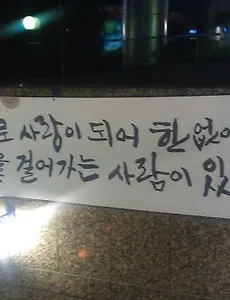 사랑이 되어 한없이
걸어가는 사람이 있